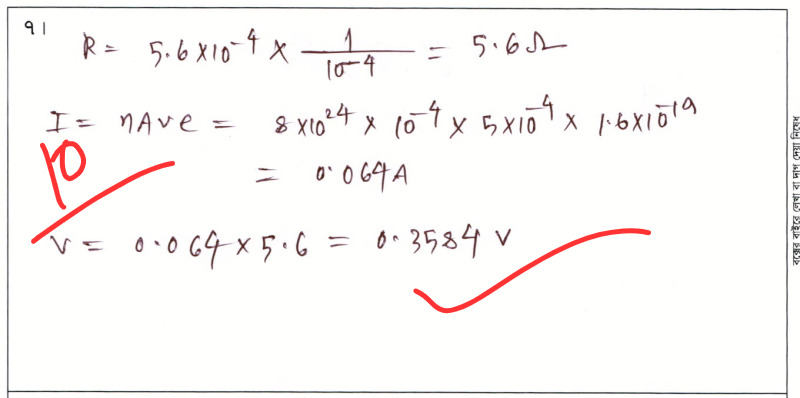 ৭।
R = 5.6×10⁻⁴ × 1/10⁻⁴ = 5.6Ω
I = nAve = 8×10²⁴ × 10⁻⁴ × 5×10⁻⁴ × 1.6×10⁻¹⁹
10
= 0.064A
V = 0.064×5.6 = 0.3584 V
বক্সের বাইরে লেখা বা দাগ দেয়া নিষেধ